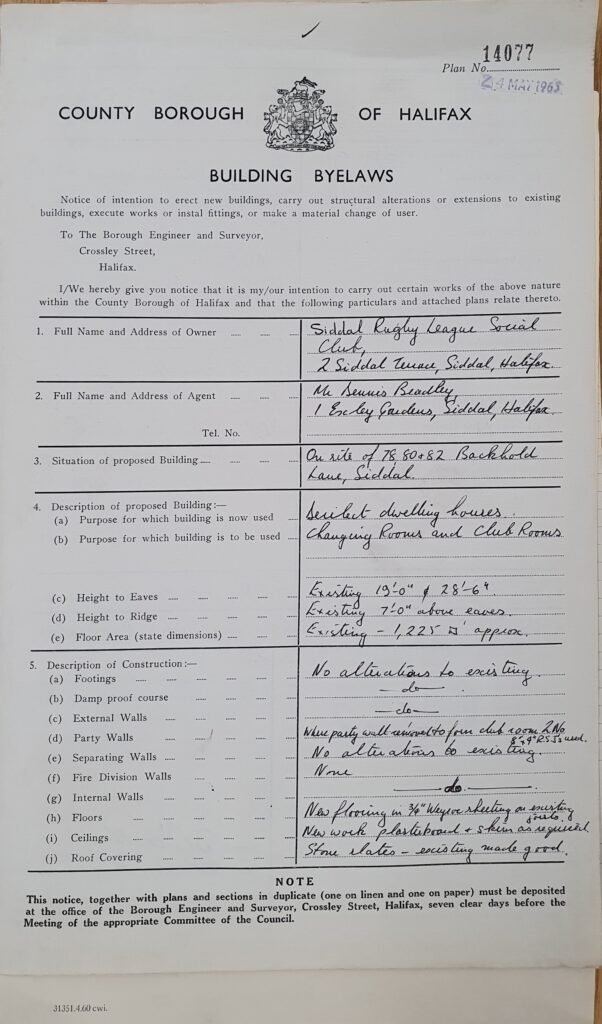 14077
Plan No.
24 MAY 1963
COUNTY BOROUGH OF HALIFAX
BUILDING BYELAWS
Notice of intention to erect new buildings, carry out structural alterations or extensions to existing
buildings, execute works or instal fittings, or make a material change of user.
To The Borough Engineer and Surveyor,
Crossley Street,
Halifax.
I/We hereby give you notice that it is my/our intention to carry out certain works of the above nature
within the County Borough of Halifax and that the following particulars and attached plans relate thereto.
1. Full Name and Address of Owner Siddal Rugby League Social
Club,
2 Siddal Terrace, Siddal, Halifax.
2. Full Name and Address of Agent Mr Dennis Beadley,
1 Exley Gardens, Siddal, Halifax
Tel. No.
3. Situation of proposed Building On site of 78 80 & 82 Backhold
Lane, Siddal.
4. Description of proposed Building:—
(a) Purpose for which building is now used Derilect dwelling houses.
(b) Purpose for which building is to be used Changing Rooms and Club Rooms
(c) Height to Eaves Existing 19'-0" & 28'-6"
(d) Height to Ridge Existing 7'-0" above eaves.
(e) Floor Area (state dimensions) Existing - 1,225 □' approx.
5. Description of Construction:—
(a) Footings No alterations to existing.
(b) Damp proof course —do—
(c) External Walls —do—
(d) Party Walls Where party wall removed to form club room 2 No
R.S.Js used.
(e) Separating Walls No alterations to existing
(f) Fire Division Walls None
(g) Internal Walls —do.—
(h) Floors New flooring in 3/4" Weyroc sheeting on existing
joists.
(i) Ceilings New work plasterboard + skim as required
(j) Roof Covering Stone slates - existing made good.
NOTE
This notice, together with plans and sections in duplicate (one on linen and one on paper) must be deposited
at the office of the Borough Engineer and Surveyor, Crossley Street, Halifax, seven clear days before the
Meeting of the appropriate Committee of the Council.
31351.4.60 cwi.